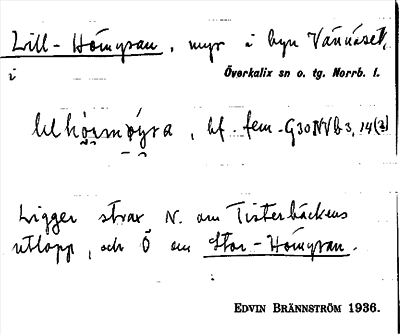 Lill-Hömyran, myr i byn Vännäset,
i Överkalix sn o. tg. Norrb. l.
bf. fem.
Ligger strax N. om Tisterbäckens
utlopp, och Ö om Stor-Hömyran.
EDVIN BRÄNNSTRÖM 1936.